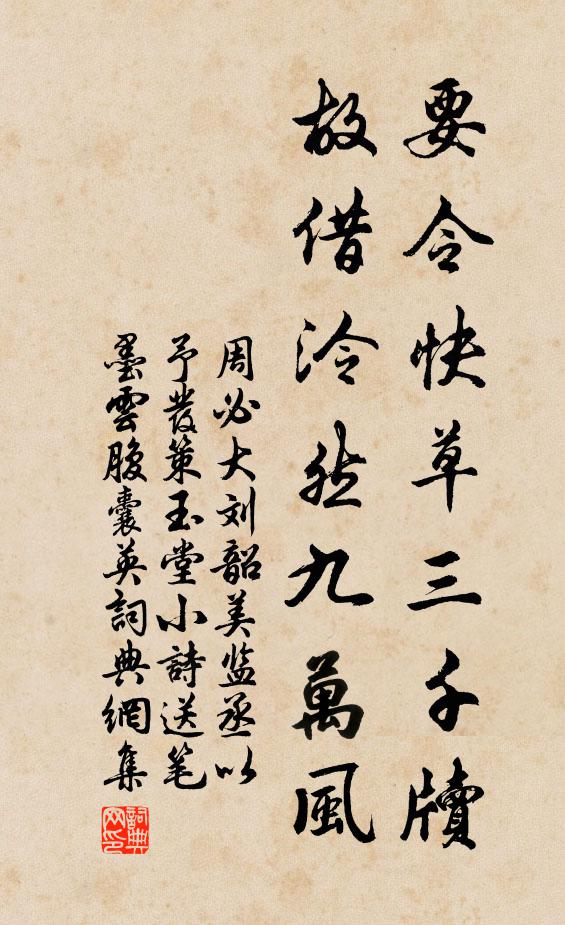 要令快草三千牘
故借泠然九萬風
周必大刘韶美监丞以
予發策玉堂小詩送笔
墨雲腴囊英詞典網集
詞典网印